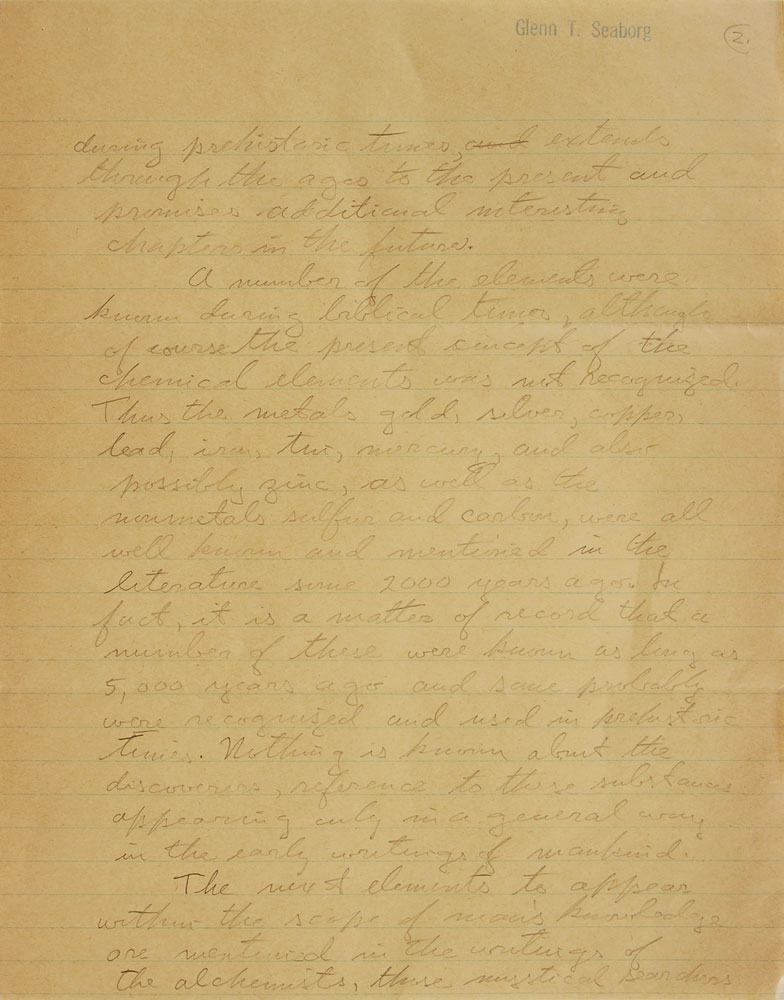 Glenn T. Seaborg
2.
during prehistoric times, and extends
through the ages to the present and
promises additional interesting
chapters in the future.
A number of the elements were
known during biblical times, although
of course the present concept of the
chemical elements was not recognized.
Thus the metals gold, silver, copper,
lead, iron, tin, mercury, and also
possibly zinc, as well as the
nonmetals sulfur and carbon, were all
well known and mentioned in the
literature some 2000 years ago. In
fact, it is a matter of record that a
number of these were known as long as
5,000 years ago and some probably
were recognized and used in prehistoric
times. Nothing is known about the
discoverers, reference to these substances
appearing only in a general way
in the early writings of mankind.
The next elements to appear
within the scope of man's knowledge
are mentioned in the writings of
the alchemists, those mystical searchers